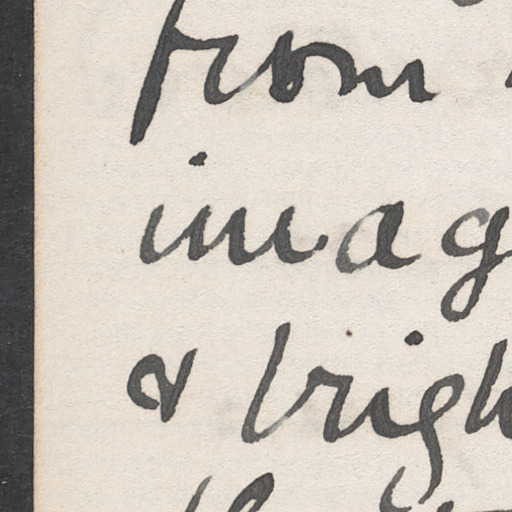 from
imag
& brigh